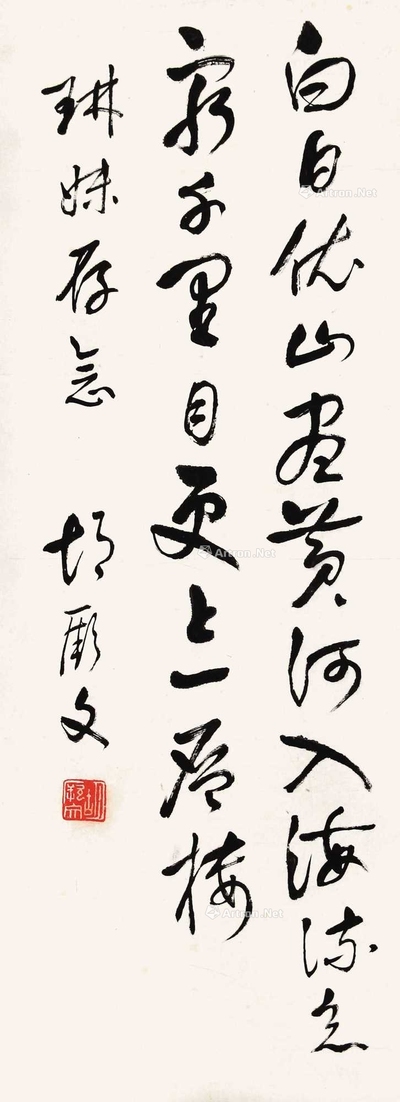 白日依山盡黃河入海流欲
窮千里目更上一層樓
琳妹存念 胡厥文
胡厥文
Artron.Net
Artron.Net
Artron.Net